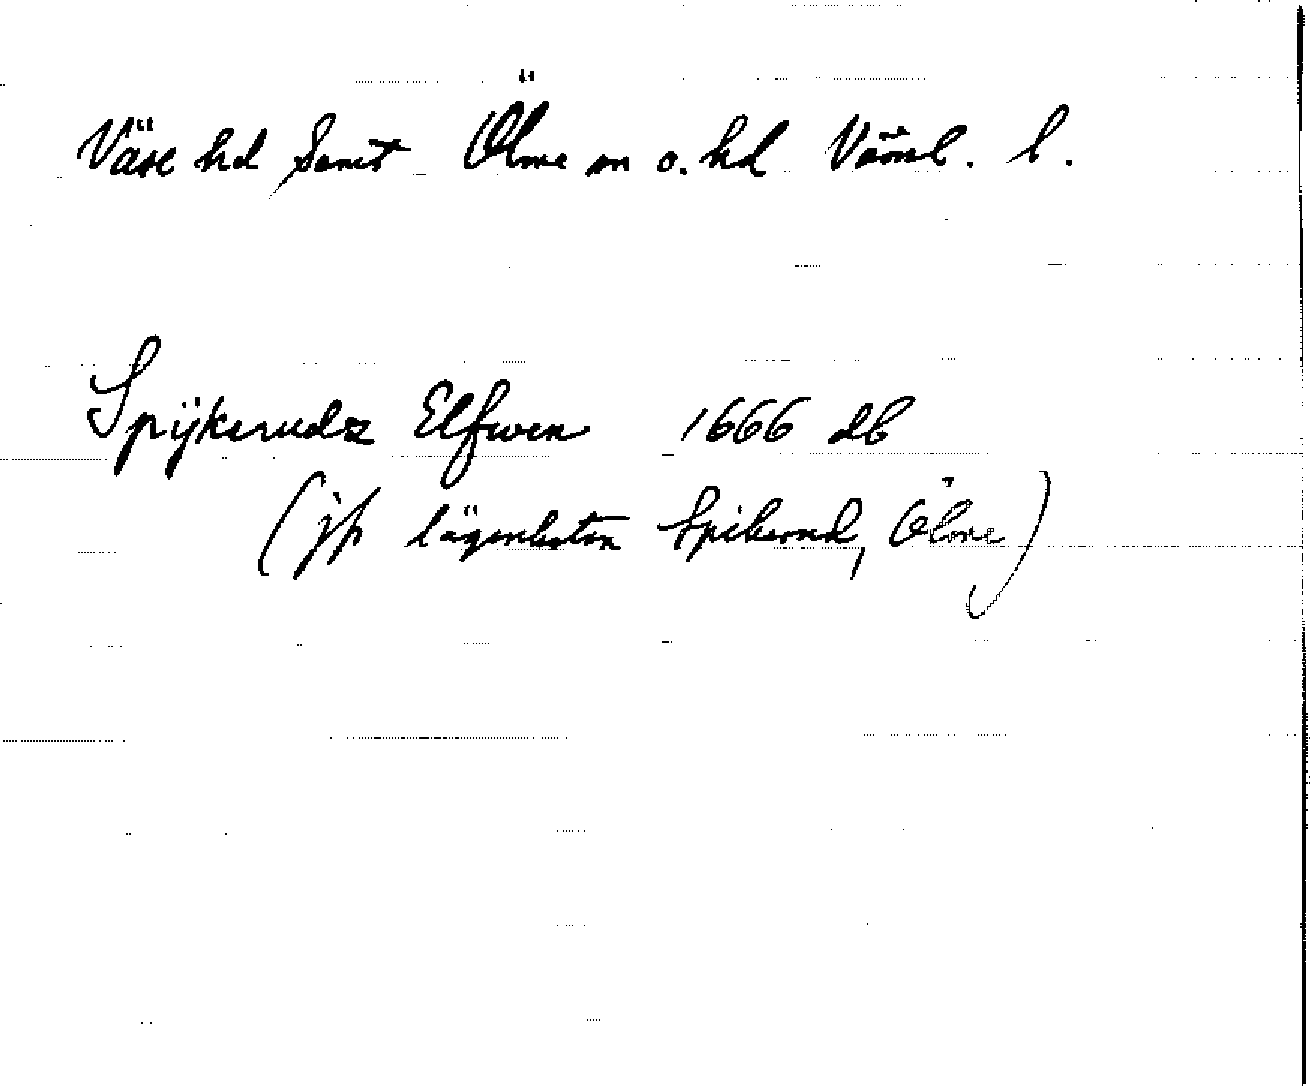 Väse hd samt Ölme sn o. hd Värml. l.
Spÿkerudz Elfwen 1666 db
(jfr lägenheten Spikerud, Ölme)